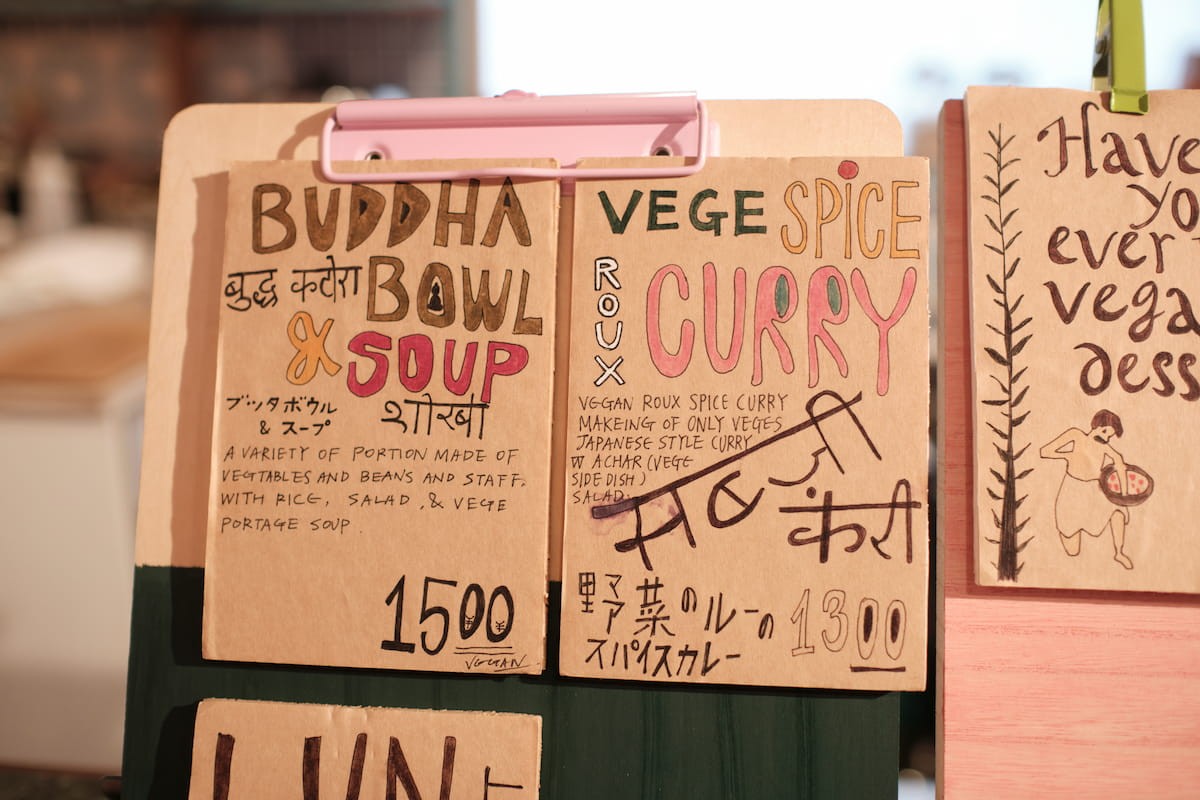 BUDDHA
बुद्ध कटोरा BOWL
& SOUP
ブッタボウル
& スープ
शोरबा
A VARIETY OF PORTION MADE OF
VEGTABLES AND BEANS AND STAFF.
WITH RICE, SALAD, & VEGE
PORTAGE SOUP.
1500
VEGAN
VEGE SPiCE
ROUX
CURRY
VGGAN ROUX SPICE CURRY
MAKEING OF ONLY VEGES
JAPANESE STYLE CURRY
W ACHAR (VEGE
SIDE DISH)
SALAD.
करी
野菜のルーの
スパイスカレー
1300
Have
yo
ever
vega
dess
LUN